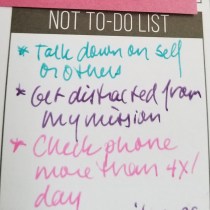 NOT TO-DO LIST
* Talk down on self
or others
* Get distracted from
my mission
* Check phone
more than 4x/
day